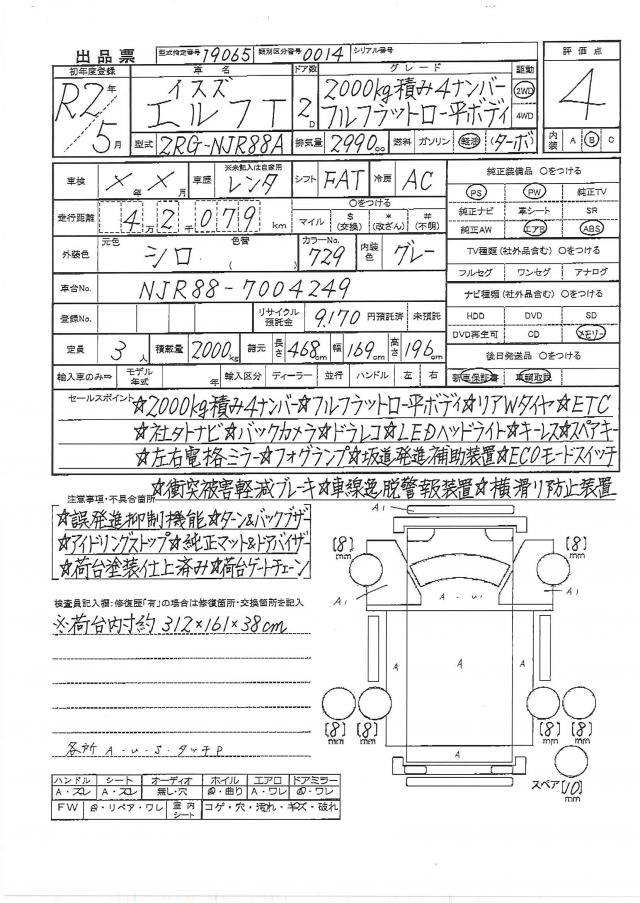 出品票 型式指定番号 19065 類別区分番号 0014 シリアル番号
初年度登録 車名 ドア数 グレード 駆動 評価点
R2年 イスズ 2000kg積み4ナンバー 2WD
エルフT 2D フルフラットロー平ボディ 4WD 4
5月 型式 2RG-NJR88A 排気量 2990cc 燃料 ガソリン 軽油 ターボ 内装 A B C
車検 × 年 × 月 車歴 ※未記入は自家用 レンタ シフト FAT 冷房 AC 純正装備品 ○をつける
PS PW 純正TV
走行距離 4万2千079km ○をつける マイル $(交換) *(改ざん) #(不明) 純正ナビ 革シート SR
純正AW エアB ABS
外装色 元色 シロ 色替 ( ) カラーNo. 729 内装色 グレー TV種類(社外品含む) ○をつける
フルセグ ワンセグ アナログ
車台No. NJR88-7004249 ナビ種類(社外品含む) ○をつける
登録No. リサイクル預託金 9,170 円預託済 未預託 HDD DVD SD
DVD再生可 CD メモリー
定員 3人 積載量 2000kg 諸元 長さ 468cm 幅 169cm 高さ 196cm 後日発送品 ○をつける
輸入車のみ⇒ モデル年式 年 輸入区分 ディーラー 並行 ハンドル 左 右 新車保証書 車輌取説
セールスポイント ☆2000kg積み4ナンバー☆フルフラットロー平ボディ☆リアWタイヤ☆ETC
☆社外ナビ☆バックカメラ☆ドラレコ☆LEDヘッドライト☆キーレス☆スペアキー
☆左右電格ミラー☆フォグランプ☆坂道発進補助装置☆ECOモードスイッチ
☆衝突被害軽減ブレーキ☆車線逸脱警報装置☆横滑り防止装置
注意事項・不具合箇所
☆誤発進抑制機能☆ターン&バックブザー
☆アイドリングストップ☆純正マット&ドアバイザー
☆荷台塗装仕上済み☆荷台ゲートチェーン
検査員記入欄:修復歴「有」の場合は修復箇所・交換箇所を記入
※荷台内寸約312×161×38cm
各所 A・U・S・タッチP
A1
[8]mm [8]mm
A1 A・U・ A1
A A A
[8]mm [8]mm [8]mm [8]mm
A
スペア [10]mm
ハンドル シート オーディオ ホイル エアロ ドアミラー
A・スレ A・スレ 無し・穴 @・曲り A・ワレ @・ワレ
FW @・リペア・ワレ 室内シート コゲ・穴・汚れ・キズ・破れ